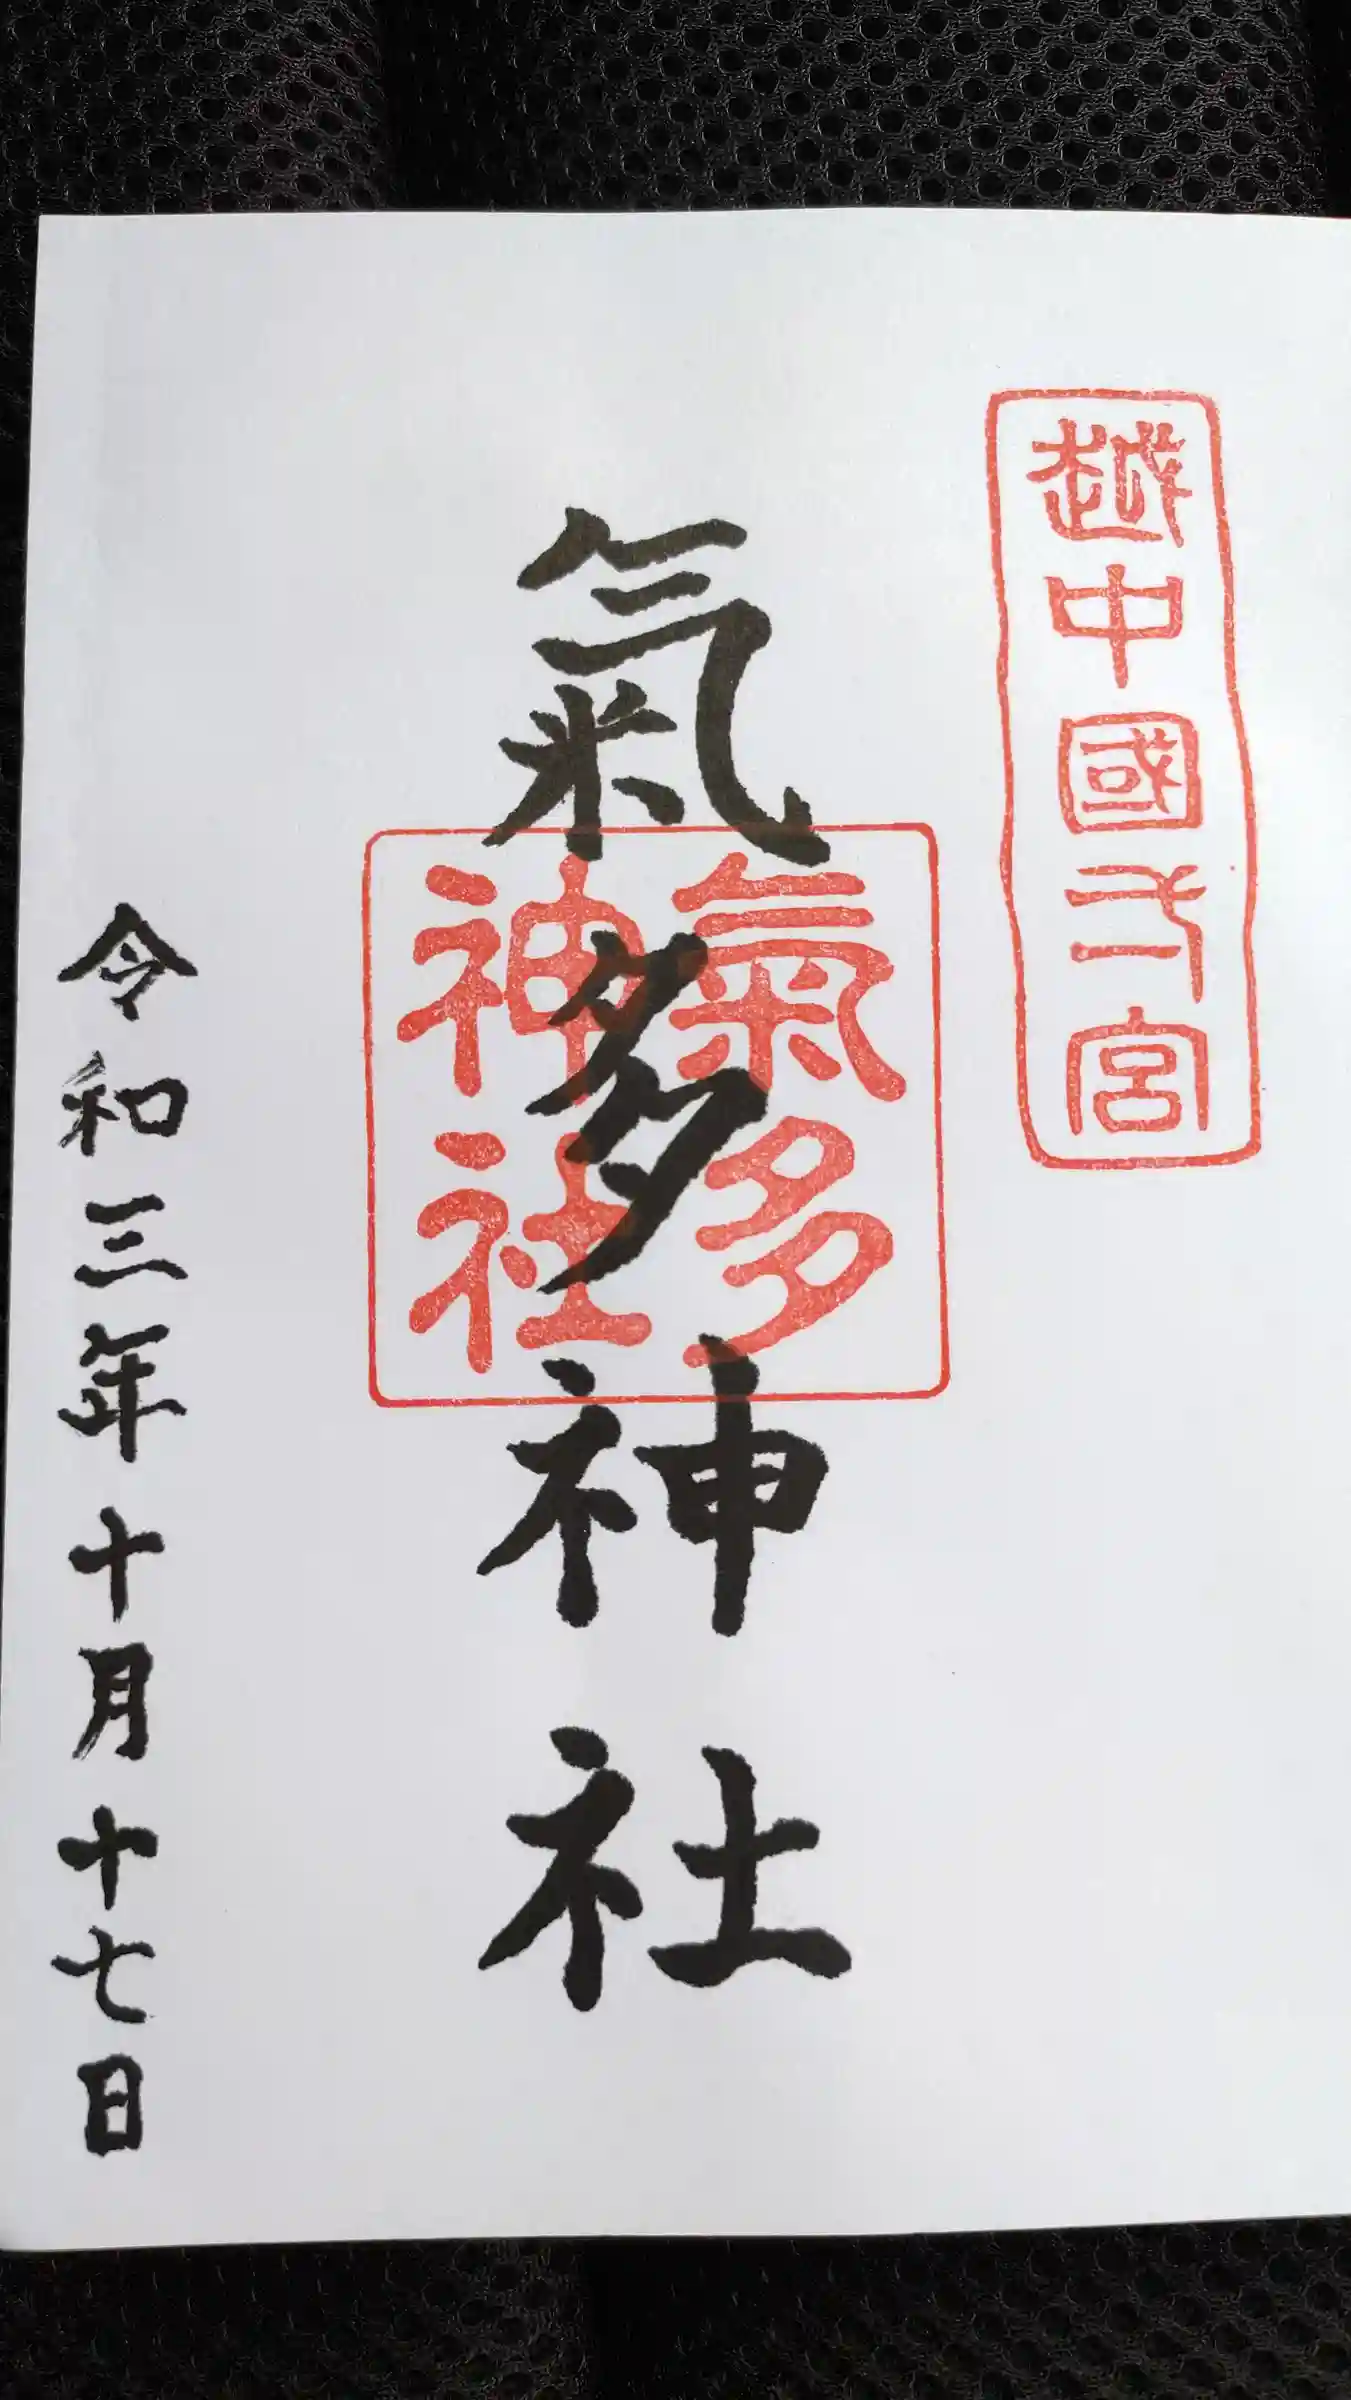 越中國弌宮
氣多神社
氣多
神社
令和三年十月十七日